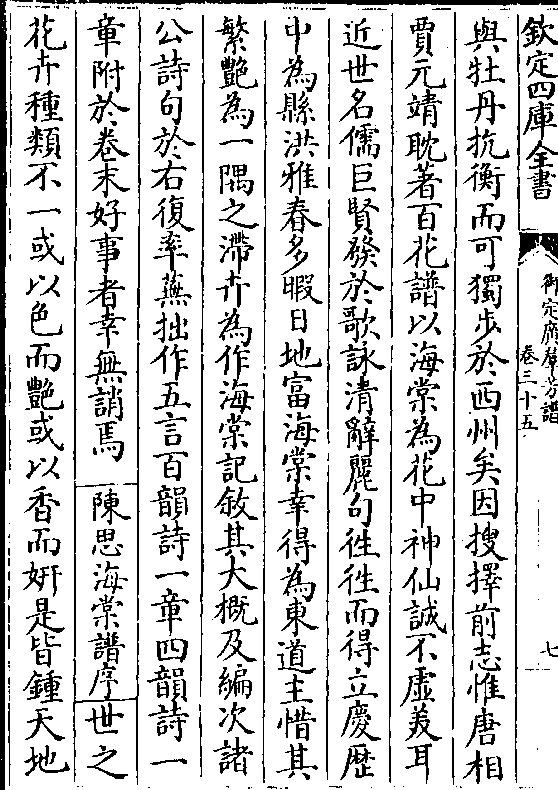 欽定四庫全書
御定廣羣芳譜
卷三十五
七
與牡丹抗衡而可獨步於西州矣因搜擇前志惟唐相
賈元靖耽著百花譜以海棠為花中神仙誠不虛美耳
近世名儒巨賢發於歌詠清辭麗句徃徃而得立慶歴
中為縣洪雅春多暇日地富海棠幸得為東道主惜其
繁艷為一隅之滯卉為作海棠記敘其大概及編次諸
公詩句於右復率蕪拙作五言百韻詩一章四韻詩一
章附於卷末好事者幸無誚焉　陳思海棠譜序世之
花卉種類不一或以色而艷或以香而妍是皆鍾天地